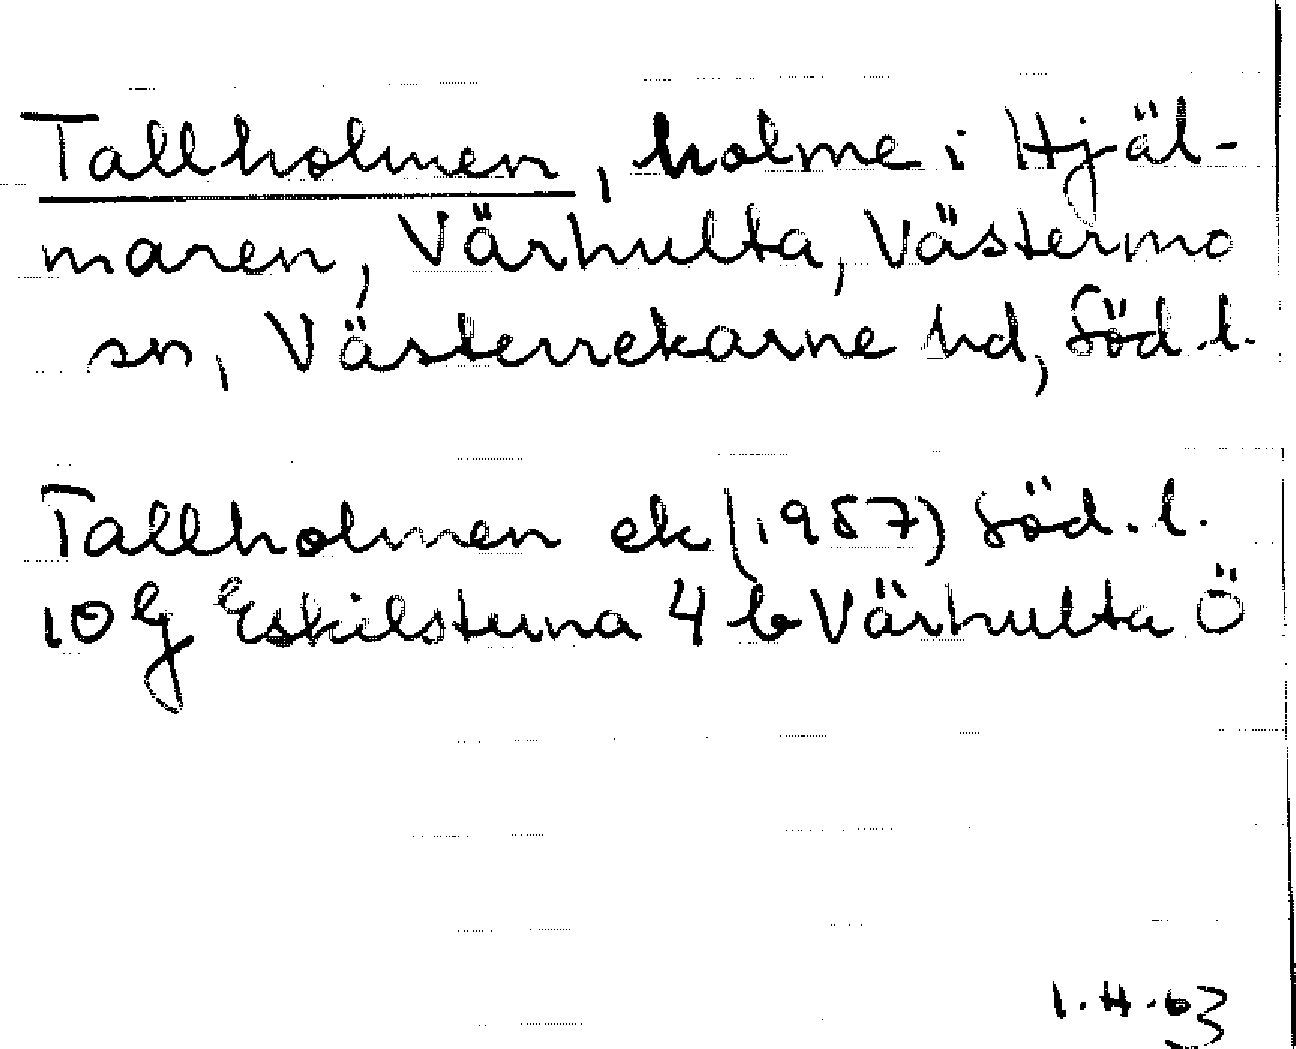 Tallholmen, holme i Hjäl-
maren, Värhulta, Västermo
sn, Västerrekarne hd, Söd.l.
Tallholmen ek (1957) Söd.l.
10 G Eskilstuna 4 b Värhulta Ö
I.H.63